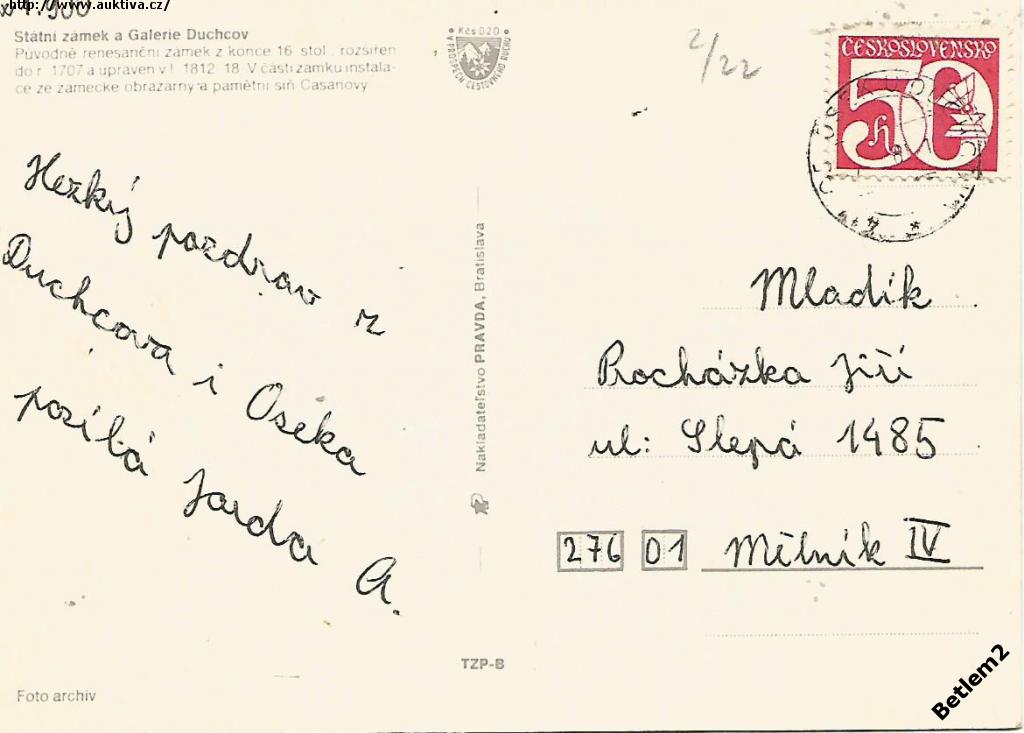 http://www.auktiva.cz/
Státní zámek a Galerie Duchcov
Původně renesanční zámek z konce 16 stol. rozšířen
do r. 1707 a upraven v l. 1812-18 V části zámku instala-
ce ze zámecké obrazárny a pamětní síň Casanovy
Kčs 0,20
V PROSPĚCH CESTOVNÉHO RUCHU
2/22
ČESKOSLOVENSKO
50 h
Hezký pozdrav z
Duchcova i Oseka
posílá Jarda A.
Nakladateľstvo PRAVDA, Bratislava
Mladík
Procházka Jiří
ul: Slepá 1485
276 01 Mělník IV
TZP-B
Foto archiv
Betlem2